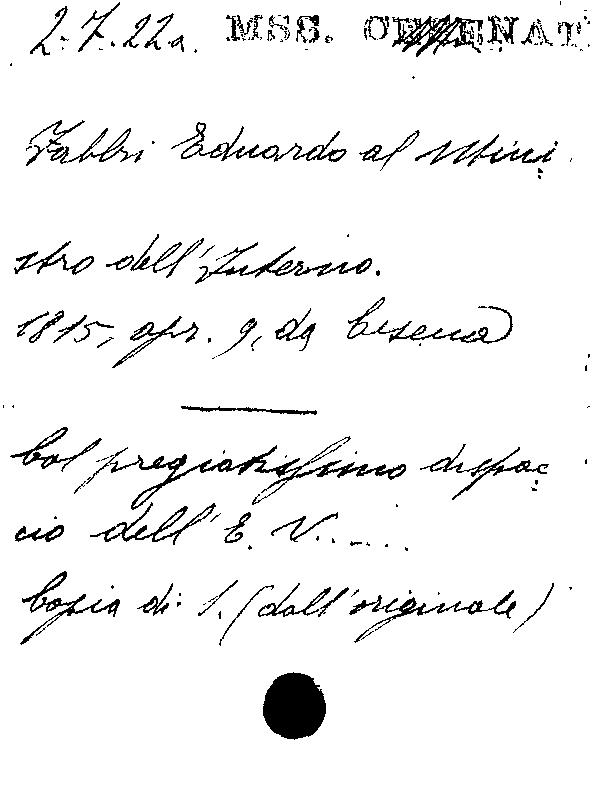 2.7.22a. MSS. CESENAT
Fabbri Eduardo al Mini
stro dell'Interno.
1815, apr. 9, da Cesena
Col pregiatissimo dispac
cio dell'E. V.....
Copia di: 1. (dall'originale)